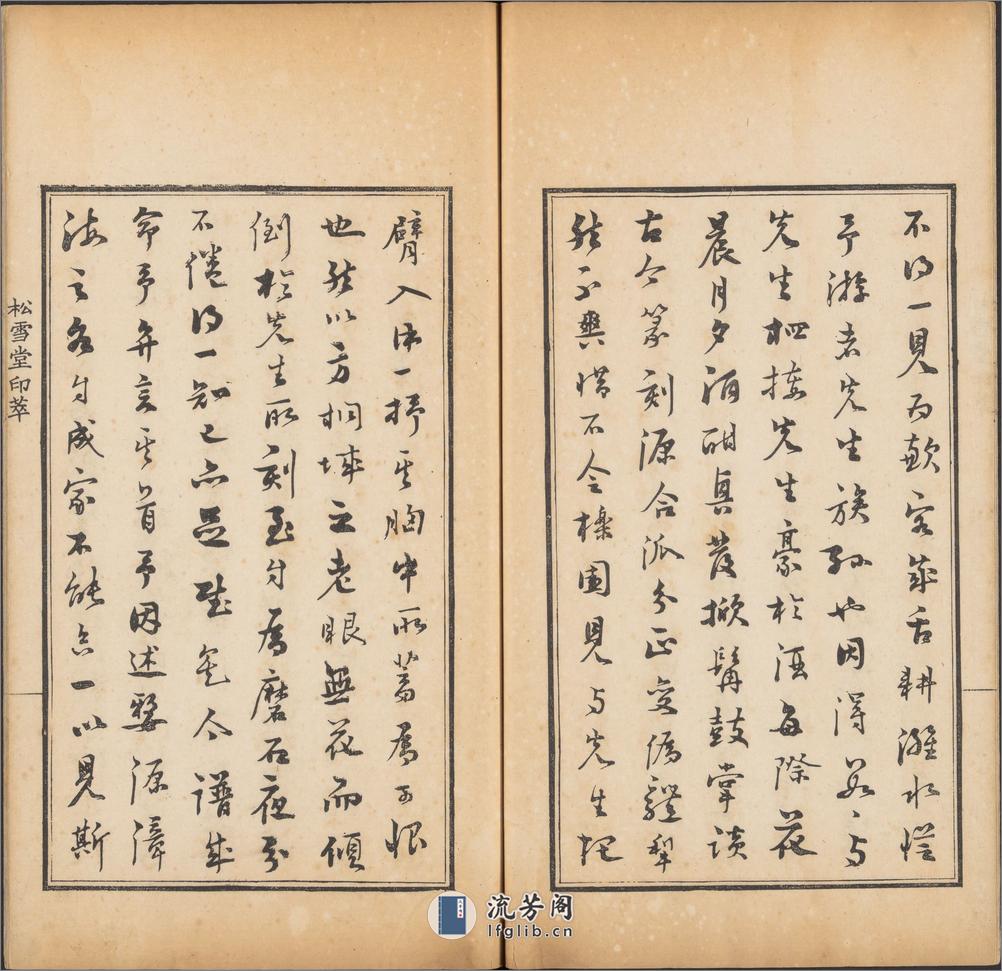 不得一見為歉客歲舌耕濰水從
予游者先生族孫也因得數〻與
先生相接先生豪於酒每際花
晨月夕酒酣興發掀髯鼓掌談
古今篆刻源合派分正變偽體犁
然不爽惜不令櫟園見與先生把
臂入林一抒其胸中所蓄為可恨
也然以方桐埜之老眼無花而傾
倒於先生所刻至自為磨石夜分
不倦得一知己亦足矣今譜成
命予弁言其首予因述婺源漳
海之各自成家不能合一以見斯
松雪堂印萃
流芳阁
lfglib.cn